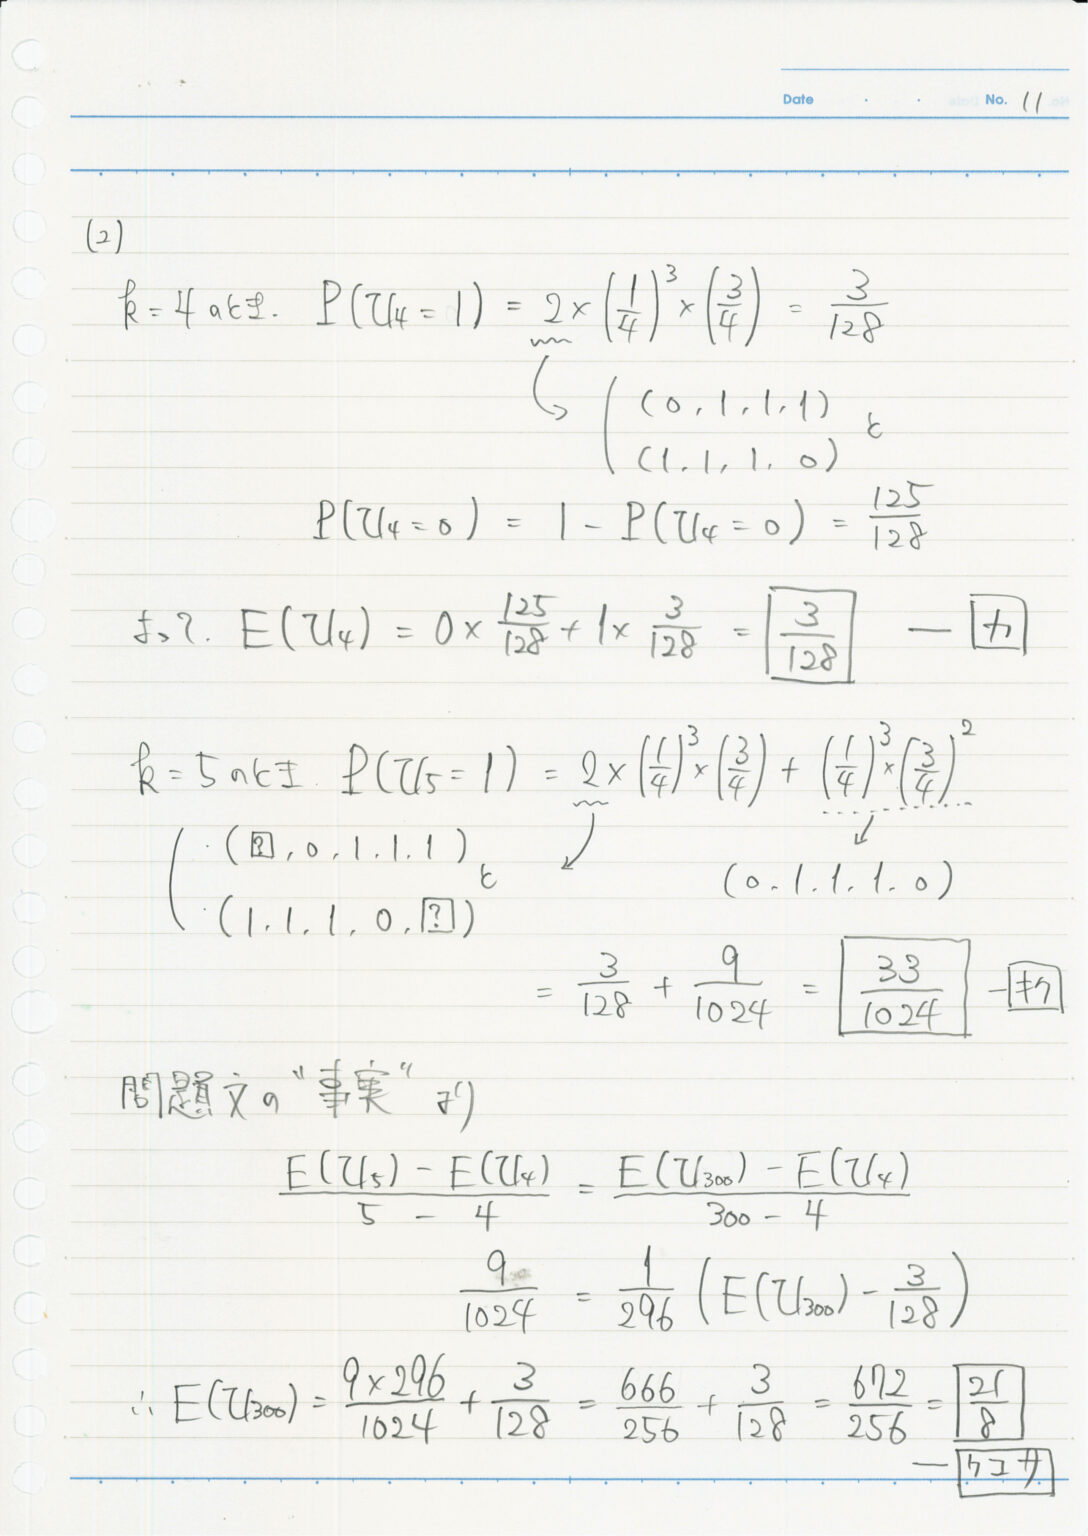 Date ・ ・ No. 11
(2)
k=4のとき. P(U₄=1) = 2×(1/4)³×(3/4) = 3/128
(0,1,1,1)
と
(1,1,1,0)
P(U₄=0) = 1 - P(U₄=0) = 125/128
よって. E(U₄) = 0×125/128 + 1×3/128 = 3/128 — カ
k=5のとき P(U₅=1) = 2×(1/4)³×(3/4) + (1/4)³×(3/4)²
・(?,0,1,1,1)
と
(0,1,1,1,0)
・(1,1,1,0,?)
= 3/128 + 9/1024 = 33/1024 — キク
問題文の"事実"より
(E(U₅) - E(U₄))/(5 - 4) = (E(U₃₀₀) - E(U₄))/(300 - 4)
9/1024 = 1/296 (E(U₃₀₀) - 3/128)
∴ E(U₃₀₀) = (9×296)/1024 + 3/128 = 666/256 + 3/128 = 672/256 = 21/8
— ケコサ